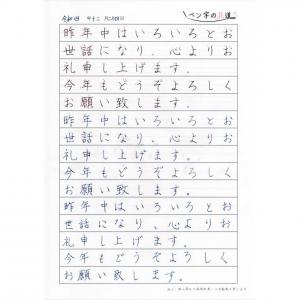 令和四 年十二月二十四日
ペン字の花道
昨年中はいろいろとお
世話になり、心よりお
礼申し上げます。
今年もどうぞよろしく
お願い致します。
昨年中はいろいろとお
世話になり、心よりお
礼申し上げます。
今年もどうぞよろしく
お願い致します。
昨年中はいろいろとお
世話になり、心よりお
礼申し上げます。
今年もどうぞよろしく
お願い致します。